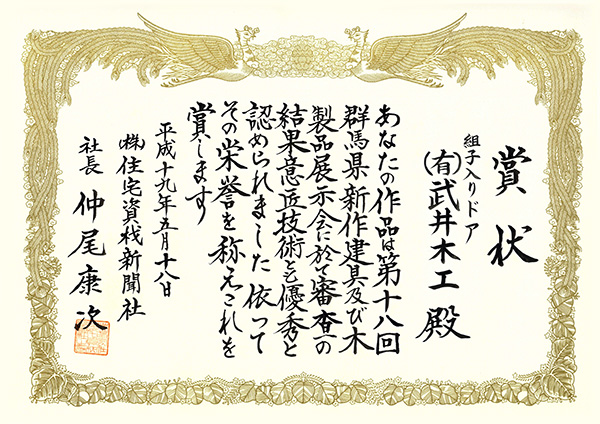 賞状
組子入りドア
(有)武井木工 殿
あなたの作品は第十八回
群馬県新作建具及び木
製品展示会に於て審査の
結果意匠技術とも優秀と
認められました 依って
その栄誉を称えこれを
賞します
平成十九年五月十八日
㈱住宅資材新聞社
社長 仲尾康次